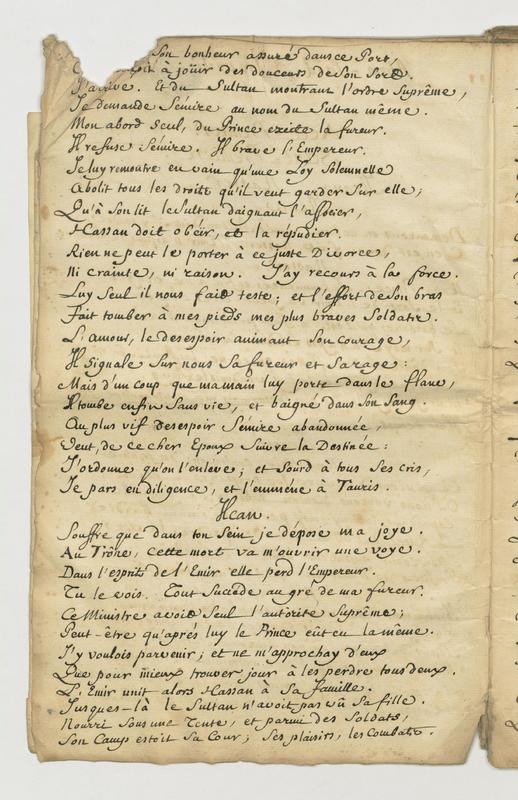 Son bonheur assuré dans ce Port,
à joüir des douceurs de Son Sort.
J'arrive. Et du Sultan montrant l'ordre Suprême,
Je demande Sémire au nom du Sultan même.
Mon abord Seul, du Prince excite la fureur.
Il refuse Sémire. Il brave l'Empereur.
Je luy remontre en vain qu'une Loy Solemnelle
Abolit tous les droits qu'il veut garder Sur elle;
Qu'à Son lit le Sultan daignant l'associer,
Hassan doit obéir, et la répudier.
Rien ne peut le porter à ce juste Divorce,
Ni crainte, ni raison. J'ay recours à la force.
Luy Seul il nous fait teste; et l'effort de Son bras
Fait tomber à mes pieds mes plus braves Soldats.
L'amour, le desespoir animant Son courage,
Il Signale Sur nous Sa fureur et Sa rage:
Mais d'un coup que ma main luy porte dans le flanc,
Il tombe enfin Sans vie, et baigné dans Son Sang.
Au plus vif desespoir Sémire abandonnée,
Veut, de ce cher Epoux Suivre la Destinée:
J'ordonne qu'on l'enleve; et Sourd à tous Ses cris,
Je pars en diligence, et l'emméne à Tauris.
Hcan.
Souffre que dans ton Sein je dépose ma joye.
Au Trône, cette mort va m'ouvrir une voye.
Dans l'esprit de l'Emir elle perd l'Empereur.
Tu le vois. Tout Succéde au gré de ma fureur.
Ce Ministre avoit Seul l'autorité Suprême;
Peut-être qu'après luy le Prince eût eu la même.
J'y voulois parvenir; et ne m'approchay d'eux
Que pour mieux trouver jour à les perdre tous deux.
L'Emir unit alors Hassan à Sa famille.
Jusques-là le Sultan n'avoit pas vû Sa fille.
Nourri Sous une Tente, et parmi des Soldats,
Son Camp estoit Sa Cour; Ses plaisirs, les Combats.